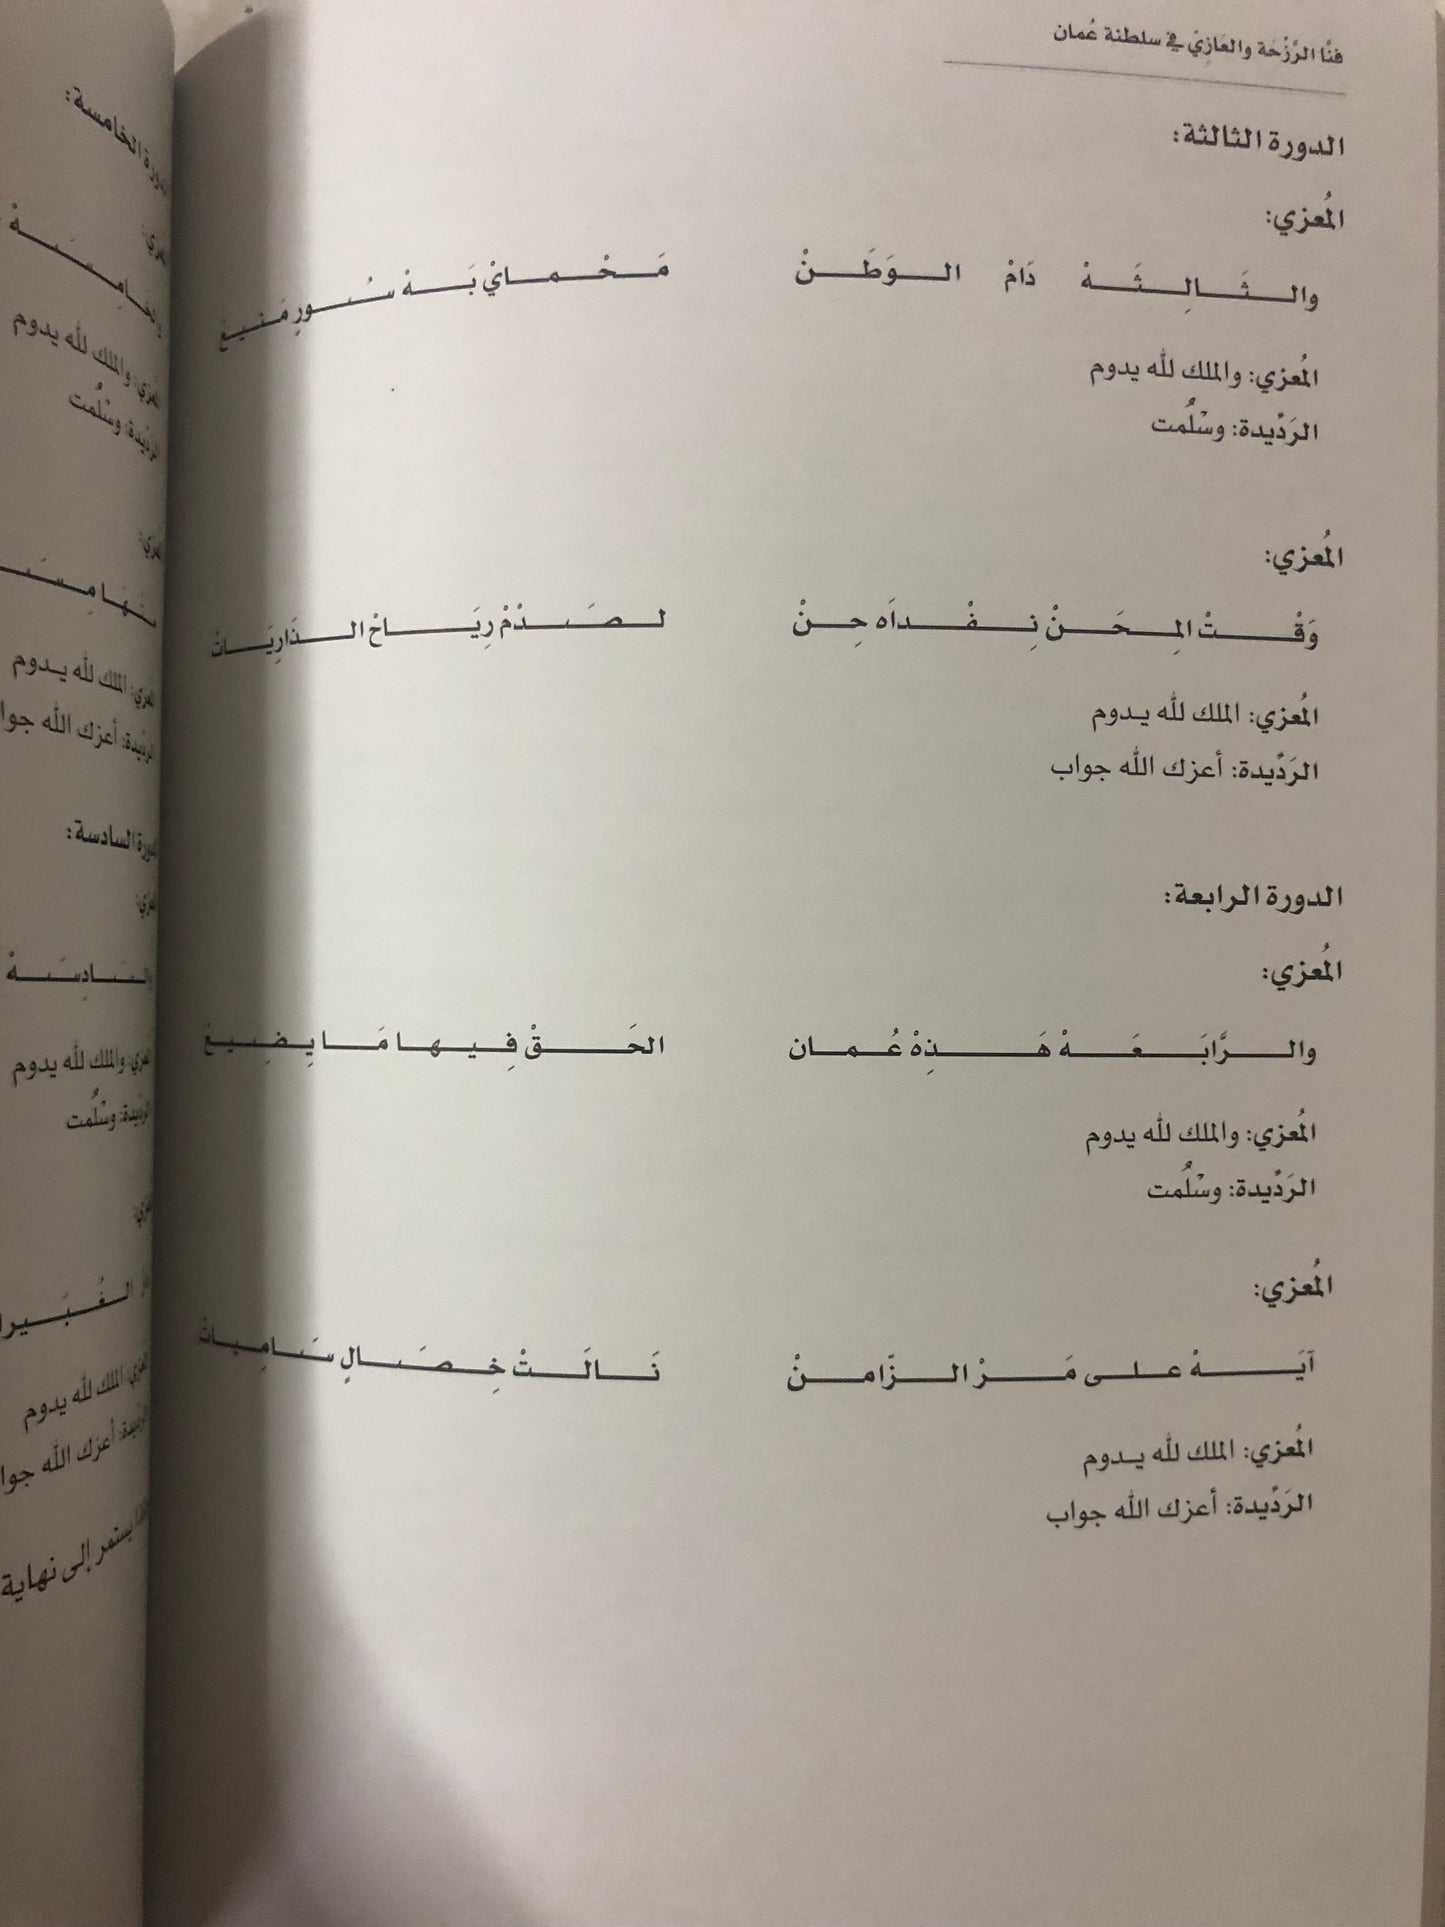 فنَّا الرَّزْحَة والعَازِيْ في سلطنة عُمان
الدورة الثالثة:
المُعزي:
والثَالِثَهْ دَامْ الوَطَنْ مَحْمايْ بَهْ سُورٍ مَنيعْ
المُعزي: والملك لله يدوم
الرَدِّيدة: وسْلُمت
المُعزي:
وَقْتْ المِحَنْ نِفْداَه حِنْ لصَدْمْ رِيَاحْ الذَارِيَاتْ
المُعزي: الملك لله يدوم
الرَدِّيدة: أعزك الله جواب
الدورة الرابعة:
المُعزي:
والرَّابَعَهْ هَذِهْ عُمان الحَقْ فِيها مَا يِضِيعْ
المُعزي: والملك لله يدوم
الرَدِّيدة: وسْلُمت
المُعزي:
آيَهْ على مَرْ الزّامنْ نَالَتْ خِصَالٍ سَامِياتْ
المُعزي: الملك لله يدوم
الرَدِّيدة: أعزك الله جواب
الدورة الخامسة:
المُعزي: والملك لله يدوم
الرَدِّيدة: وسْلُمت
المُعزي: الملك لله يدوم
الرَدِّيدة: أعزك الله
الدورة السادسة:
والسَادِسَهْ
المُعزي: والملك لله يدوم
الرَدِّيدة: وسْلُمت
المُعزي: الملك لله يدوم
الرَدِّيدة: أعزك الله
يستمر إلى نهاية